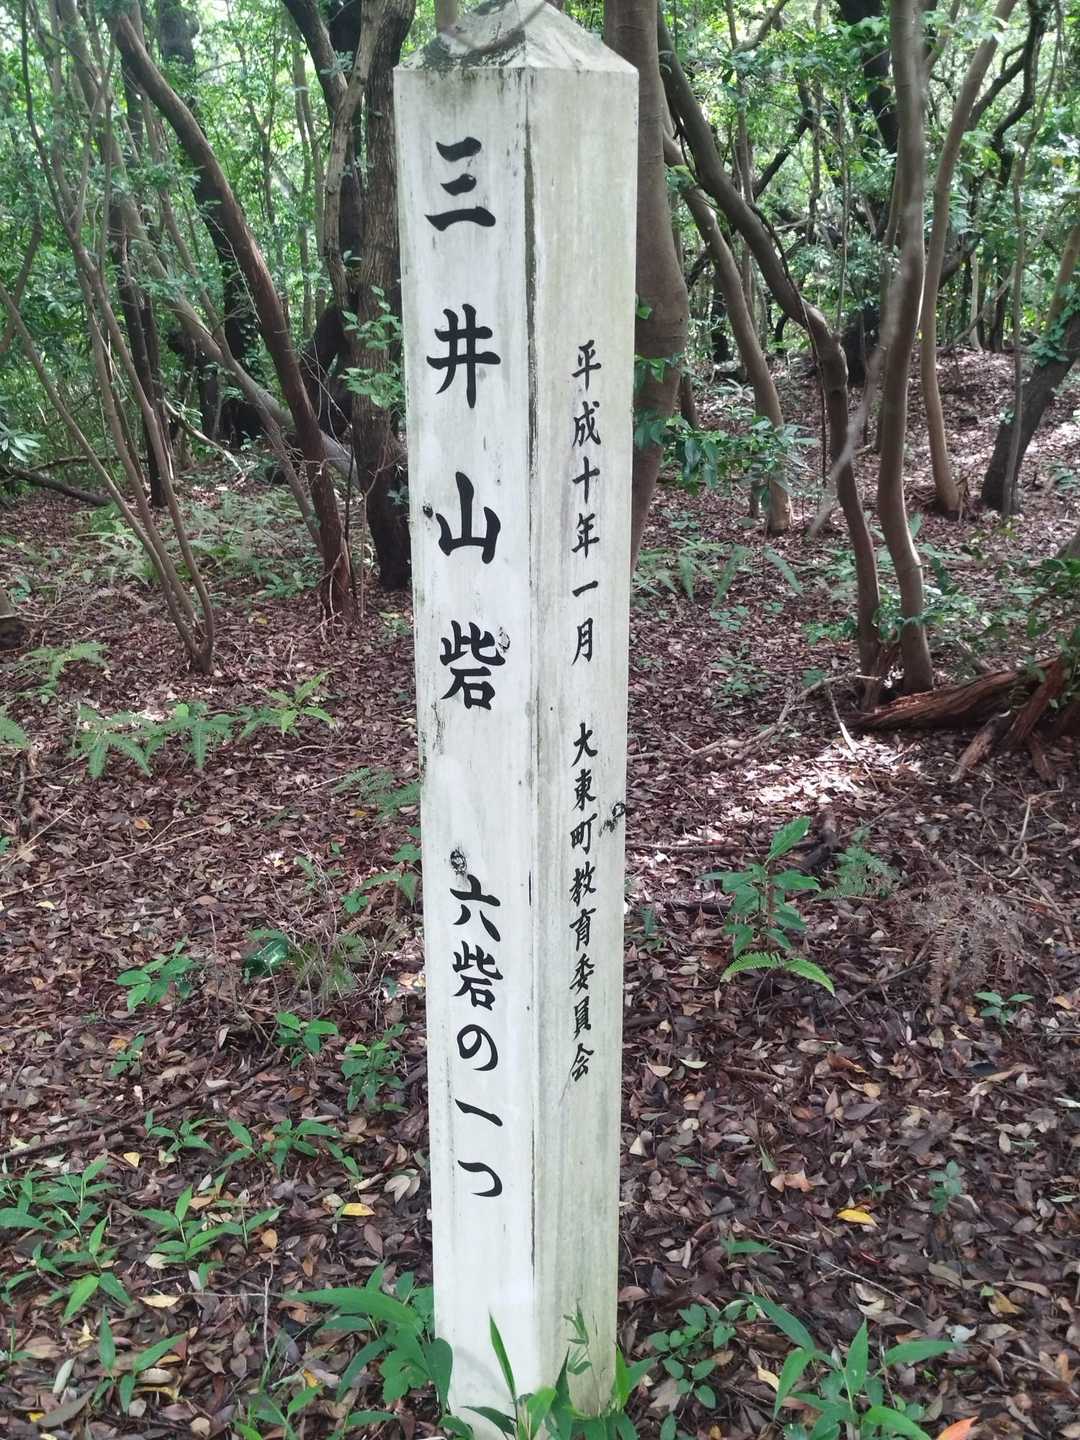 三井山砦 六砦の一つ
平成十年一月 大東町教育委員会